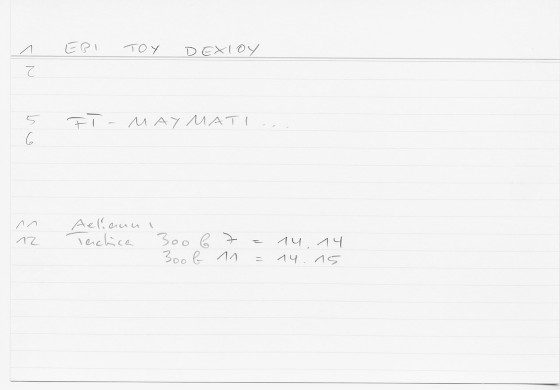 1 EPI TOY DEXIOY
2
5 FT - MAYMATI...
6
11 Aeliani
12 Tactica 300 b 7 = 14.14
300 b 11 = 14.15